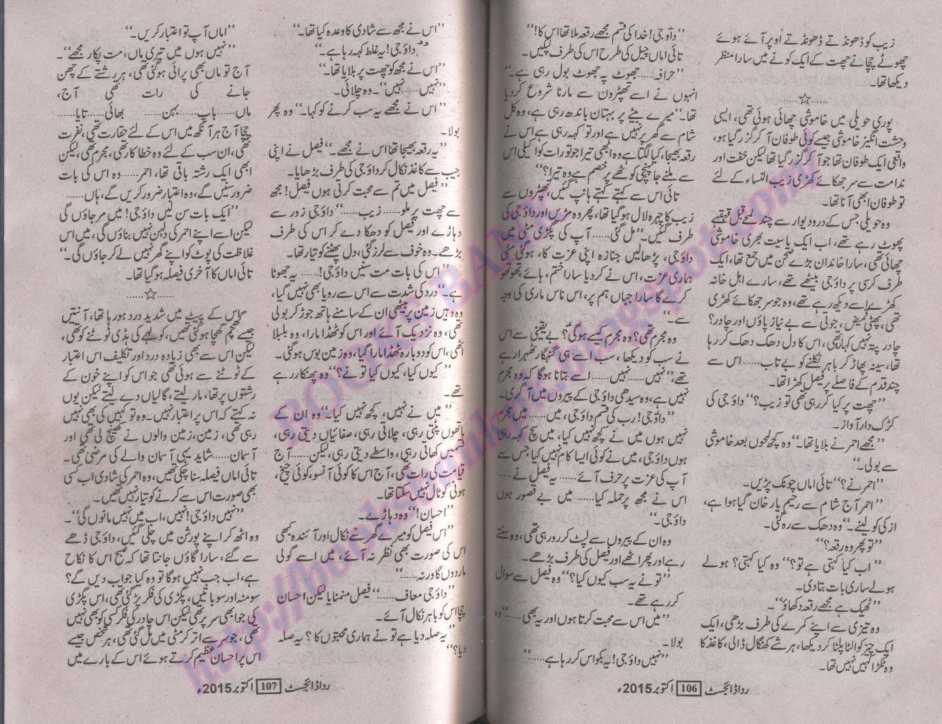 زیب کو ڈھونڈتے ڈھونڈتے اُوپر آئے ہوئے
چھوٹے چچا نے چھت کے ایک کونے میں سارا منظر
دیکھا تھا۔
پوری حویلی میں خاموشی چھائی ہوئی تھی، ایسی
وحشت انگیز خاموشی جیسے کوئی طوفان آ کر گزر گیا ہو،
واقعی ایک طوفان تھا جو آ کر گزر گیا تھا لیکن خفت اور
ندامت سے سر جھکائے کھڑی زیب النساء کے لئے
تو طوفان ابھی آنا تھا۔
وہ حویلی جس کے در و دیوار سے چند لمحے قبل قہقہے
پھوٹ رہے تھے، اب ایک یاسیت بھری خاموشی
چھائی تھی، سارا خاندان بڑے صحن میں جمع تھا، ایک
طرف کرسی پر داؤ جی بیٹھے تھے، سارے اہل خانہ
کھڑے اسے دیکھ رہے تھے، وہ جو سر جھکائے کھڑی
تھی، پھٹی قمیض، جوتی سے بے نیاز پاؤں اور چادر؟
چادر پتہ نہیں کہاں تھی، اس کا دل دھک دھک کر رہا
تھا، سینہ پھاڑ کر باہر نکلنے کو بے تاب...... اس سے
چند قدم کے فاصلے پر فیصل کھڑا تھا۔
"چھت پر کیا کر رہی تھی تو زیب؟" داؤ جی کی
کڑک دار آواز۔
"مجھے احمر نے بلایا تھا۔" وہ کچھ لمحوں بعد خاموشی
سے بولی۔
"احمر نے؟" تائی اماں چونک پڑیں۔
"احمر آج شام سے رحیم یار خان گیا ہوا ہے،
از کی کو لینے۔" وہ دھک سے رہ گئی۔
"تو پھر وہ رقعہ؟"
"اب کیا کہتی ہے تو؟" وہ کیا کہتی؟ ہولے
ہولے ساری بات بتا دی۔
"ٹھیک ہے مجھے رقعہ دکھاؤ"۔
وہ تیزی سے اپنے کمرے کی طرف بڑھی، ایک
ایک چیز کو الٹا پلٹا کر دیکھا، ہر شے کھنگال ڈالی، کاغذ کا
وہ ٹکڑا کہیں نہیں تھا۔
"داؤ جی! خدا کی قسم مجھے رقعہ ملا تھا اس کا!"
تائی اماں چیل کی طرح اس کی طرف لپکیں۔
"حرافہ...... جھوٹ پہ جھوٹ بول رہی ہے۔"
انہوں نے اسے تھپڑوں سے مارنا شروع کر دیا
تھا۔ "میرے بیٹے پر بہتان باندھ رہی ہے، وہ کل
شام سے گھر پر نہیں ہے اور تو کہہ رہی ہے اس نے
رقعہ بھیجا، کیا لگتا ہے وہ ابھی تیرا جو تو رات کو اکیلی اس
سے ملنے جا پہنچی کوئی شرم ہے وہ تیرا؟"
تائی اس سے کہتے کہتے ہانپ گئیں، تھپڑوں سے
زیب کا چہرہ لال ہو گیا تھا، پھر وہ مڑیں اور داؤ جی کی
طرف گئیں۔ "مل گئی...... آپ کی پگڑی مٹی میں
داؤ جی، پڑھا لیں جنازہ اپنی عزت کا، ہو گئی مٹی
ہماری عزت، اس نے کر دیا سارا ختم، ہائے تھو تھو
کرے گا سارا جہاں ہم پر، اس ناس ماری کی وجہ
سے۔"
وہ مجرم تھی؟ وہ مجرم کیسے ہو گئی؟ بے یقینی سے اس
نے سب کو دیکھا، سب اسے ہی گنہگار ٹھہرا رہے
تھے "نہیں...... نہیں...... اسے بتانا ہو گا کہ وہ مجرم
نہیں ہے، وہ سیدھی داؤ جی کے پیروں میں آ گری۔
"داؤ جی! رب کی قسم داؤ جی، میں...... میں مجرم
نہیں ہوں میں نے کچھ نہیں کیا، میں سچ کہہ رہی
ہوں داؤ جی، میں نے کوئی ایسا کام نہیں کیا جس سے
آپ کی عزت پر حرف آئے...... یہ فیصل نے......
اس نے مجھ پر حملہ کیا...... میں بے قصور ہوں
داؤ جی۔"
وہ ان کے پیروں سے لپٹ کر رو رہی تھی، وہ سنتے
رہے اور پھر اٹھے اور فیصل کی طرف بڑھے۔
"تو نے یہ سب کیوں کیا؟" وہ فیصل سے سوال
کر رہے تھے۔
"میں اس سے محبت کرتا ہوں اور یہ بھی......" وہ
بولا۔
"نہیں داؤ جی! یہ بکواس کر رہا ہے......"
رواڈائجسٹ 106 اکتوبر 2015ء
"اس نے مجھ سے شادی کا وعدہ کیا تھا۔"
"داؤ جی! یہ غلط کہہ رہا ہے۔"
"اس نے مجھ کو چھت پر بلایا تھا۔"
"نہیں...... نہیں"۔ وہ چلائی۔
"اس نے مجھے یہ سب کرنے کو کہا۔" وہ پھر
بولا۔
"یہ رقعہ بھیجا تھا اس نے مجھے۔" فیصل نے اپنی
جیب سے کاغذ نکال کر داؤ جی کی طرف بڑھایا۔
"فیصل میں تم سے محبت کرتی ہوں فیصل! مجھ
سے چھت پر ملو...... زیب......" داؤ جی زور سے
دہاڑے اور فیصل کو دھکا دے کر اس کی طرف
بڑھے۔ وہ خوف سے لرز گئی، دل پھٹنے کو تیار تھا۔
"اس کی بات مت سنیں داؤ جی!...... یہ جھوٹا
ہے"۔ درد کی شدت سے اس سے رویا بھی نہیں گیا،
وہ وہیں زمین پر بیٹھی ان کے سامنے ہاتھ جوڑ کر بولی
تھی، وہ نزدیک آئے اور اس کو ٹھڈا مارا، وہ بلبلا
اٹھی، اس کو دوبارہ ٹھڈا مارا گیا، وہ زمین بوس ہو گئی۔
"کیوں کیا، کیوں کیا تو نے؟" وہ پھنکار رہے
تھے۔
"میں نے نہیں، کچھ نہیں کیا۔" وہ ان کے
ہاتھوں پٹتی رہی، چلاتی رہی، صفائیاں دیتی رہی،
قسمیں کھاتی رہی، واسطے دیتی رہی، لیکن...... آج
قیامت کی رات تھی، آج اس کا کوئی آنسو، کوئی چیخ،
ہونی کو ٹال نہیں سکتا تھا۔
"احسان!" وہ دہاڑے۔
"اس فیصل کو میرے گھر سے نکال اور آئندہ کبھی
اس کی صورت بھی نظر نہ آئے، میں اسے گولی
مار دوں گا ورنہ......"
"داؤ جی معاف......" فیصل منمنایا لیکن احسان
چچا اس کو باہر نکال آئے۔
"یہ صلہ دیا ہے تو نے ہماری محبتوں کا؟ یہ صلہ
دیا؟"
"اماں آپ تو اعتبار کریں۔"
"نہیں ہوں میں تیری ماں، مت پکار مجھے"۔
آج تو ماں بھی پرائی ہو گئی تھی، ہر رشتے کے چھن
جانے کی رات تھی آج،
ماں...... باپ...... بہن...... بھائی...... تایا......
چچا آج ہر آنکھ میں اس کے لئے حقارت تھی، نفرت
تھی، ان سب کے لئے وہ خطا کار تھی، مجرم تھی، لیکن
ابھی ایک رشتہ باقی تھا، احمر...... وہ اس کی بات
ضرور سنیں گے، وہ اعتبار ضرور کریں گے، ہاں......
"ایک بات سن لیں داؤ جی! میں مر جاؤں گی
لیکن اسے اپنے احمر کی دلہن نہیں بناؤں گی، میں اس
غلاظت کی پوٹ کو اپنے گھر نہیں لے کر جاؤں گی۔"
تائی اماں کا آخری فیصلہ ہو گیا تھا۔
اس کے پیٹ میں شدید درد ہو رہا تھا، آنتیں
جیسے گچھم گچھا ہو گئی تھیں، کولہے کی ہڈی ٹوٹنے کو تھی،
لیکن اس سے بھی زیادہ درد اور تکلیف اس اعتبار
کے ٹوٹنے سے ہوئی تھی جو اس کو اپنے خون کے
رشتوں پر تھا، مار لیتے، گالیاں دے لیتے لیکن یوں
نہ کہتے کہ اس پر اعتبار نہیں۔ وہ تو کہیں کی بھی نہیں
رہی تھی، زمین، زمین والوں نے کھینچ لی تھی اور
آسمان...... شاید یہی آسمان والے کی مرضی تھی۔
تائی اماں فیصلہ سنا چکی تھیں، وہ احمر کی شادی اب کسی
بھی صورت اس سے کرنے کو تیار نہیں تھیں۔
"نہیں داؤ جی! نہیں، اب میں نہیں مانوں گی"۔
وہ اٹھ کر اپنے پورشن میں چلی گئیں، داؤ جی ڈھے
سے گئے، سارا گاؤں جانتا تھا کہ صبح اس کا نکاح
ہے، اب جب نہیں ہو گا تو وہ کیا جواب دیں گے؟
سو منہ اور سو باتیں، پگڑی کی فکر پڑ گئی تھی، اس پگڑی
کی جو ابھی سر پر تھی لیکن اس چادر کی فکر کسی کو بھی نہیں
تھی، جو سر سے اتر کر مٹی میں مل گئی تھی، ہر شخص جیسے
اس پر احسان عظیم کرتے ہوئے اس کے بارے میں
رواڈائجسٹ 107 اکتوبر 2015ء